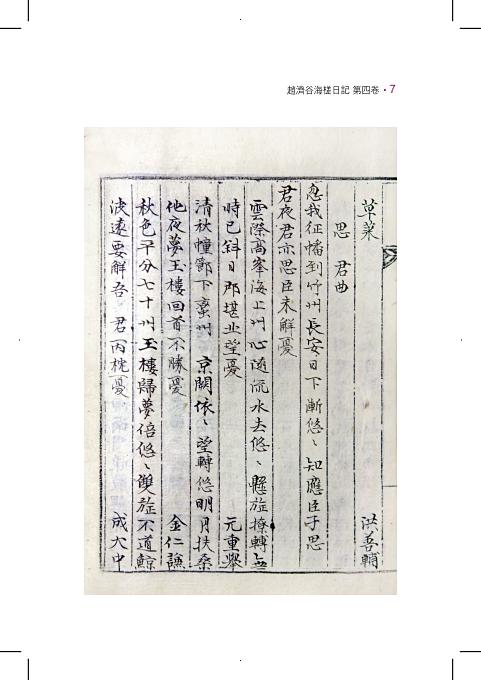 趙濟谷海槎日記 第四卷 • 7
草菜 洪善輔
思 君曲
忽我征幡到竹州長安日下漸悠〻知應臣子思
君夜君亦思臣未解憂
雲際高峯海上州心隨流水去悠〻懸旌撩轉無
時已斜日那堪北望憂 元重擧
清秋幢節下蠻州 京闕依〻望轉悠明月扶桑
他夜夢玉樓回首不勝憂 金仁謙
秋色平分七十州玉樓歸夢倍悠〻雙旌不道鯨
波遠要解吾 君丙枕憂 成大中